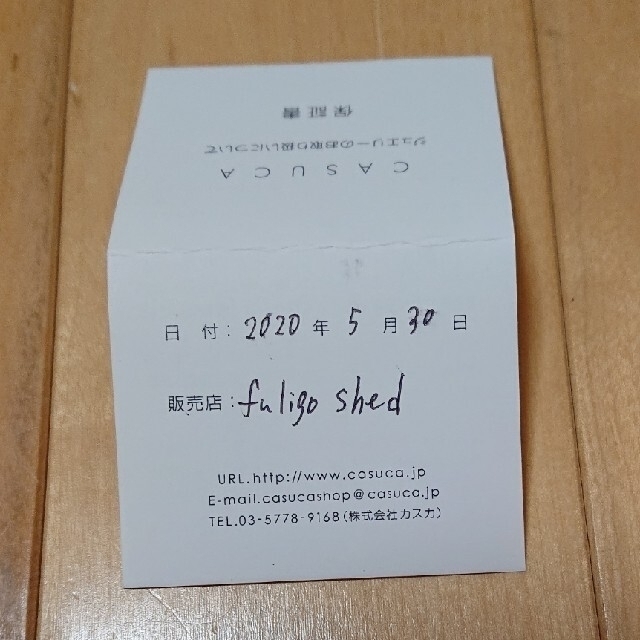 保証書
ジュエリーのお取り扱いについて
CASUCA
日 付: 2020 年 5 月 30 日
販売店: fuligo shed
URL.http://www.casuca.jp
E-mail.casucashop@casuca.jp
TEL.03-5778-9168(株式会社カスカ)